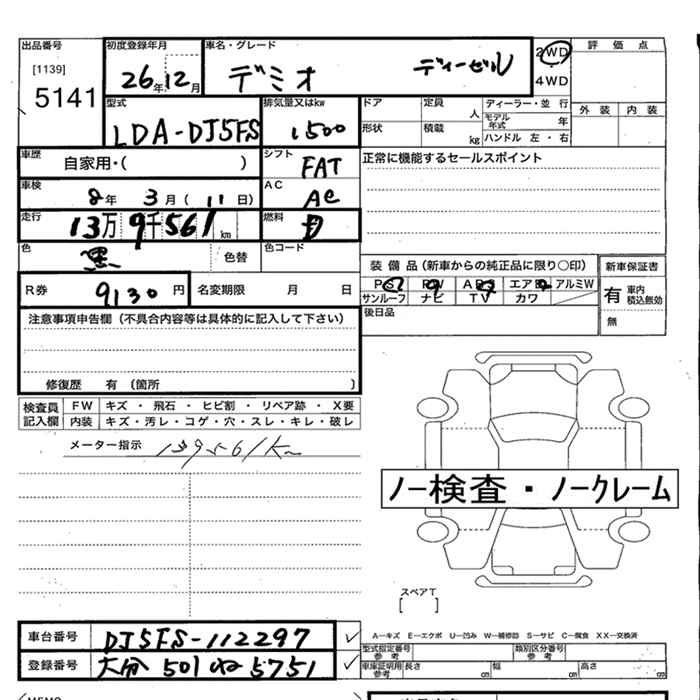 出品番号 初度登録年月 車名・グレード 2WD 評価点
[1139] 26年12月 デミオ ディーゼル 4WD
5141
型式 排気量又はkw ドア 定員 人 ディーラー・並行 外装 内装
LDA-DJ5FS 1500 形状 積載 kg モデル年式 年
ハンドル 左・右
車歴 自家用・( ) シフト FAT 正常に機能するセールスポイント
車検 8年 3月 (11日) AC AC
走行 13万9千561km 燃料 D
色 黒 色替 色コード
装備品(新車からの純正品に限り○印) 新車保証書
R券 9130円 名変期限 月 日
PS PW AB エアB アルミW 有 車内 積込無効
サンルーフ ナビ TV カワ 無
注意事項申告欄(不具合内容等は具体的に記入して下さい) 後日品
修復歴 有 〔箇所 〕
検査員記入欄 FW キズ・飛石・ヒビ割・リペア跡・X要
内装 キズ・汚レ・コゲ・穴・スレ・キレ・破レ
メーター指示 139561km
ノー検査・ノークレーム
スペアT
[ ]
車台番号 DJ5FS-112297
A−キズ E−エクボ U−凹み W−補修跡 S−サビ C−腐食 XX−交換済
型式指定番号 参考 類別区分番号 参考
登録番号 大分 501 ね 5751
車庫証明用 参考 長さ cm 幅 cm 高さ cm
MEMO